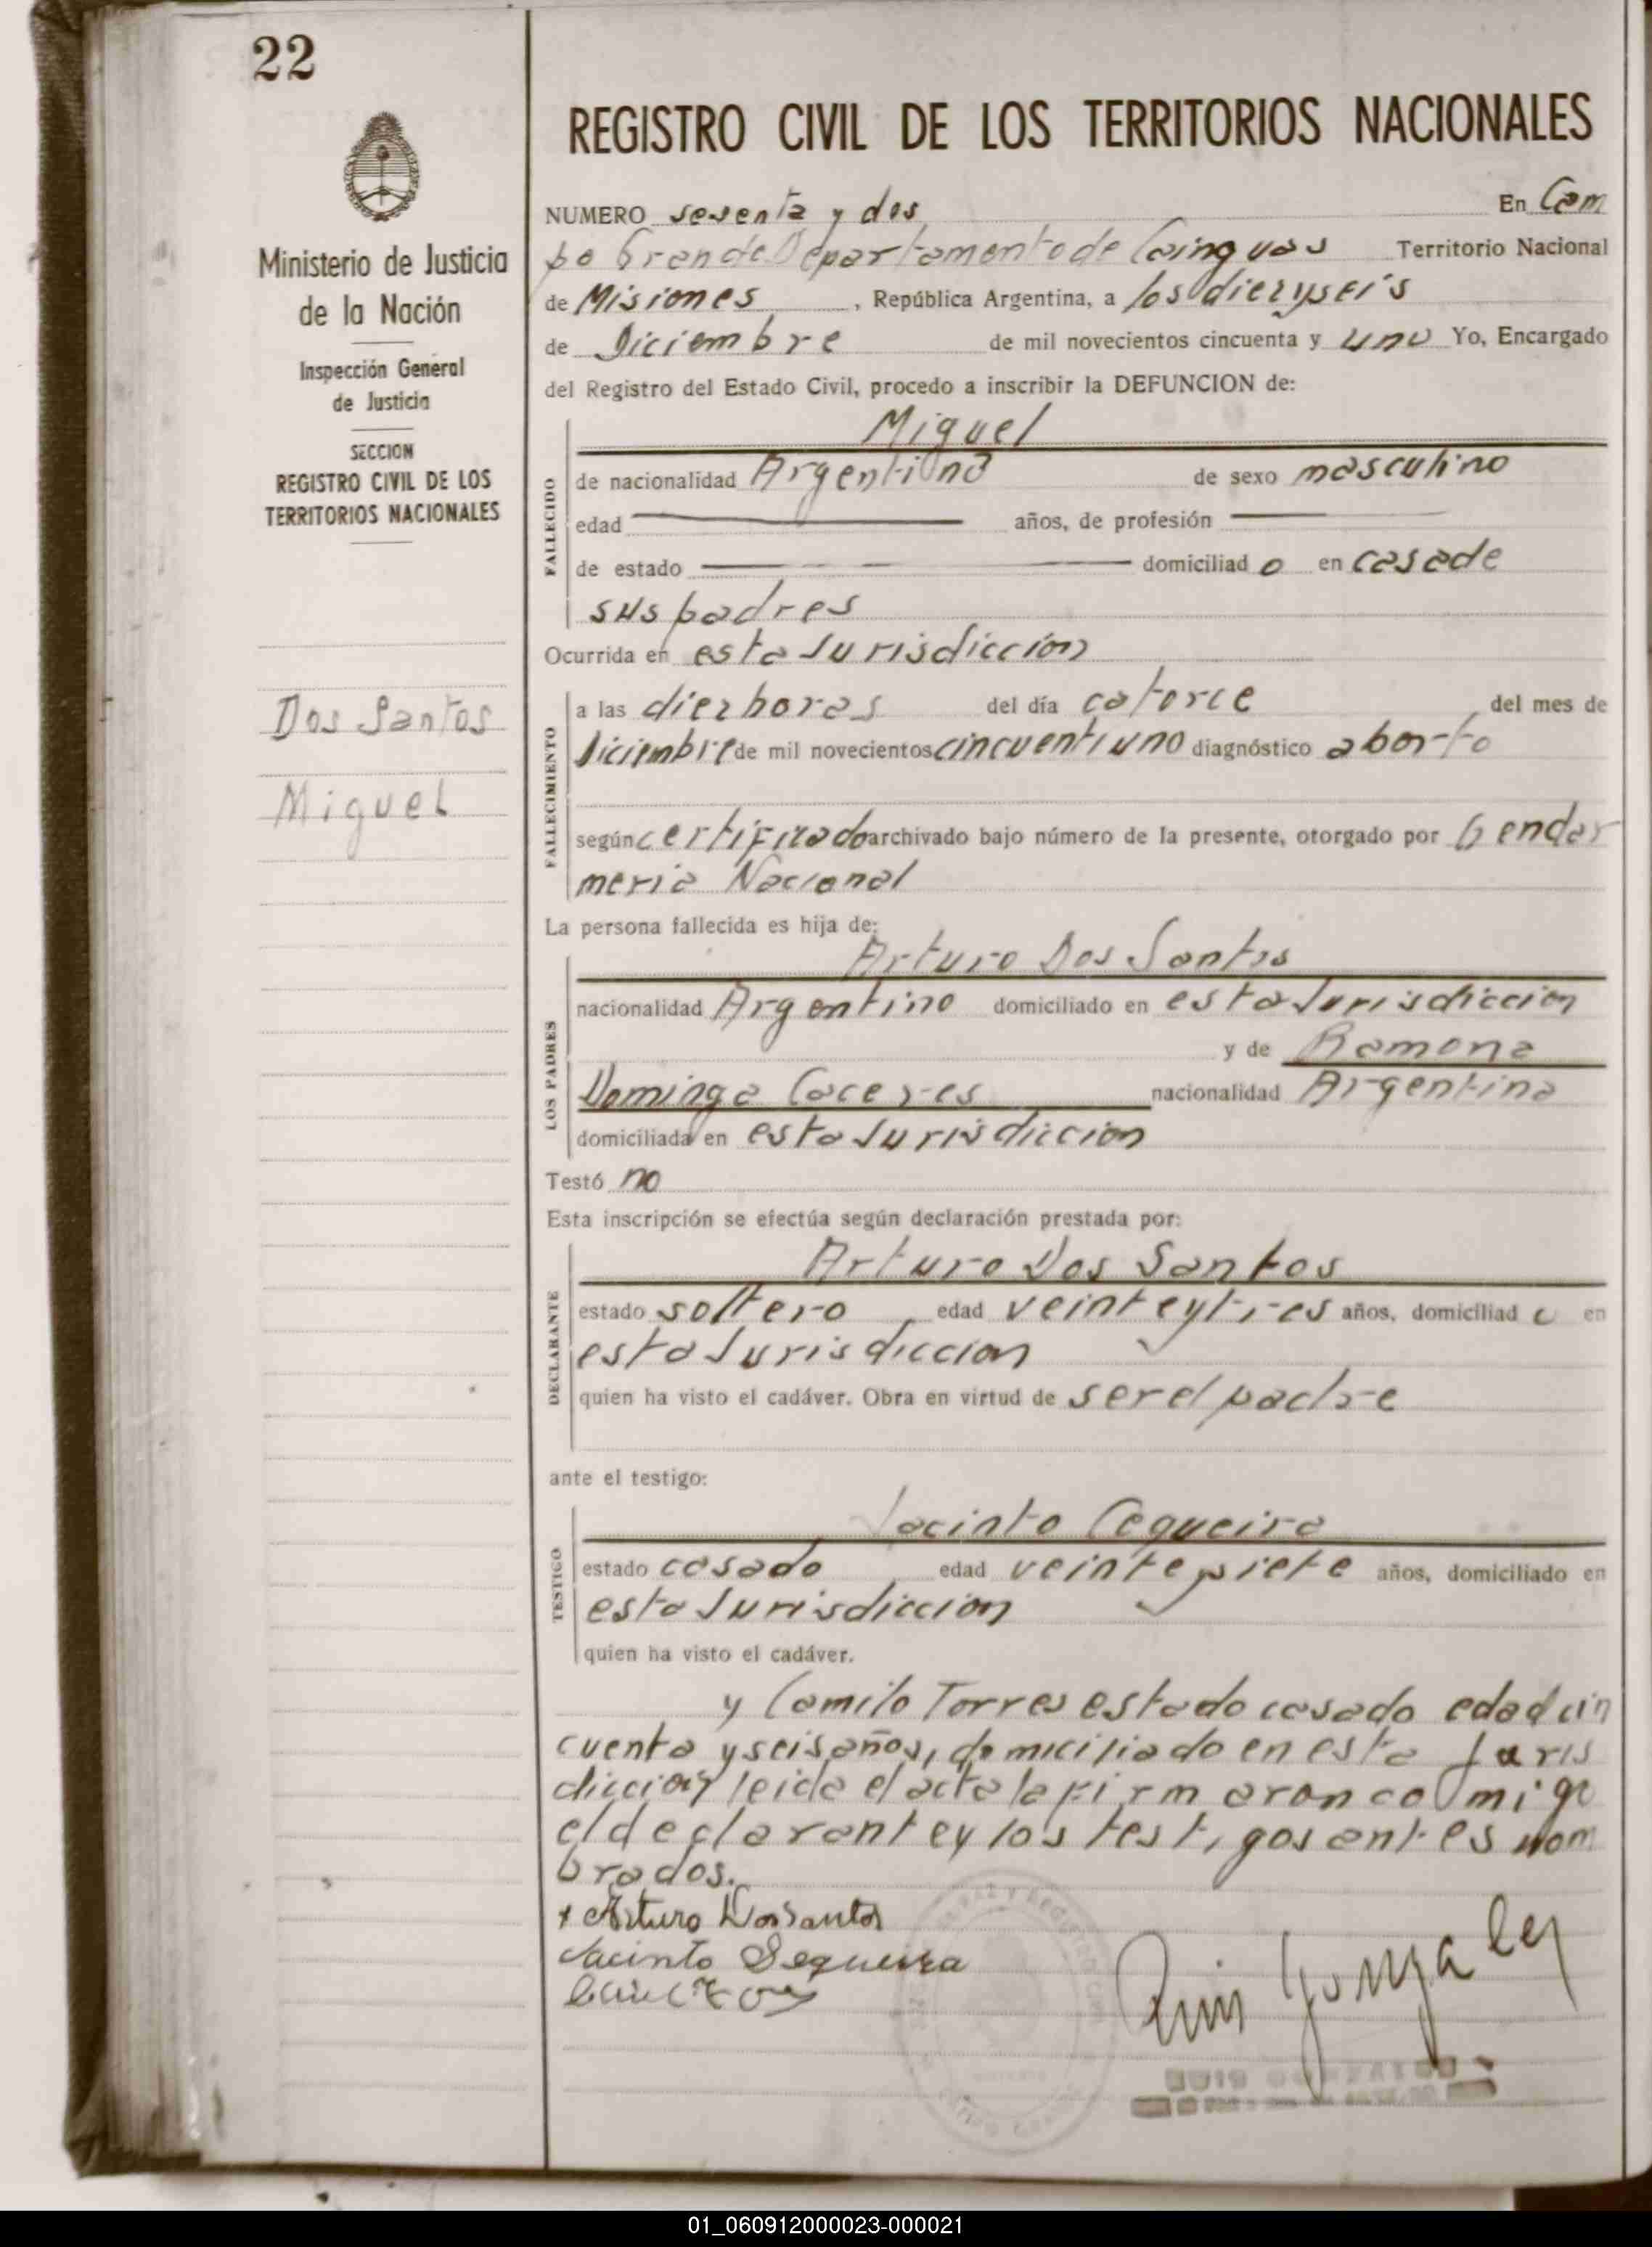 22
REGISTRO CIVIL DE LOS TERRITORIOS NACIONALES
Ministerio de Justicia
de la Nación
Inspección General
de Justicia
SECCION
REGISTRO CIVIL DE LOS
TERRITORIOS NACIONALES
Dos Santos
Miguel
NUMERO sesenta y dos En Cam
po Grande Departamento de Cainguas Territorio Nacional
de Misiones, República Argentina, a los diez y seis
de Diciembre de mil novecientos cincuenta y uno Yo, Encargado
del Registro del Estado Civil, procedo a inscribir la DEFUNCION de:
FALLECIDO
Miguel
de nacionalidad Argentina de sexo masculino
edad años, de profesión
de estado domiciliado en casa de
sus padres
Ocurrida en esta Jurisdiccion
FALLECIMIENTO
a las diez horas del día catorce del mes de
Diciembre de mil novecientos cincuentiuno diagnóstico aborto
según certificado archivado bajo número de la presente, otorgado por Gendar
meria Nacional
La persona fallecida es hija de:
LOS PADRES
Arturo Dos Santos
nacionalidad Argentino domiciliado en esta Jurisdiccion
y de Ramona
Dominga Caceres nacionalidad Argentina
domiciliada en esta Jurisdiccion
Testó no
Esta inscripción se efectúa según declaración prestada por:
DECLARANTE
Arturo Dos Santos
estado soltero edad veinte y tres años, domiciliado en
esta Jurisdiccion
quien ha visto el cadáver. Obra en virtud de ser el padre
ante el testigo:
TESTIGO
Jacinto Cequeira
estado casado edad veinte y siete años, domiciliado en
esta Jurisdiccion
quien ha visto el cadáver.
y Camilo Torres estado casado edad cin
cuenta y seis años, domiciliado en esta Juris
diccion leida el acta la firmaron co migo
el declarante y los testigos antes nom
brados.
Arturo Dos Santos
Jacinto Sequeira
Luis Gonzalez
01_060912000023-000021